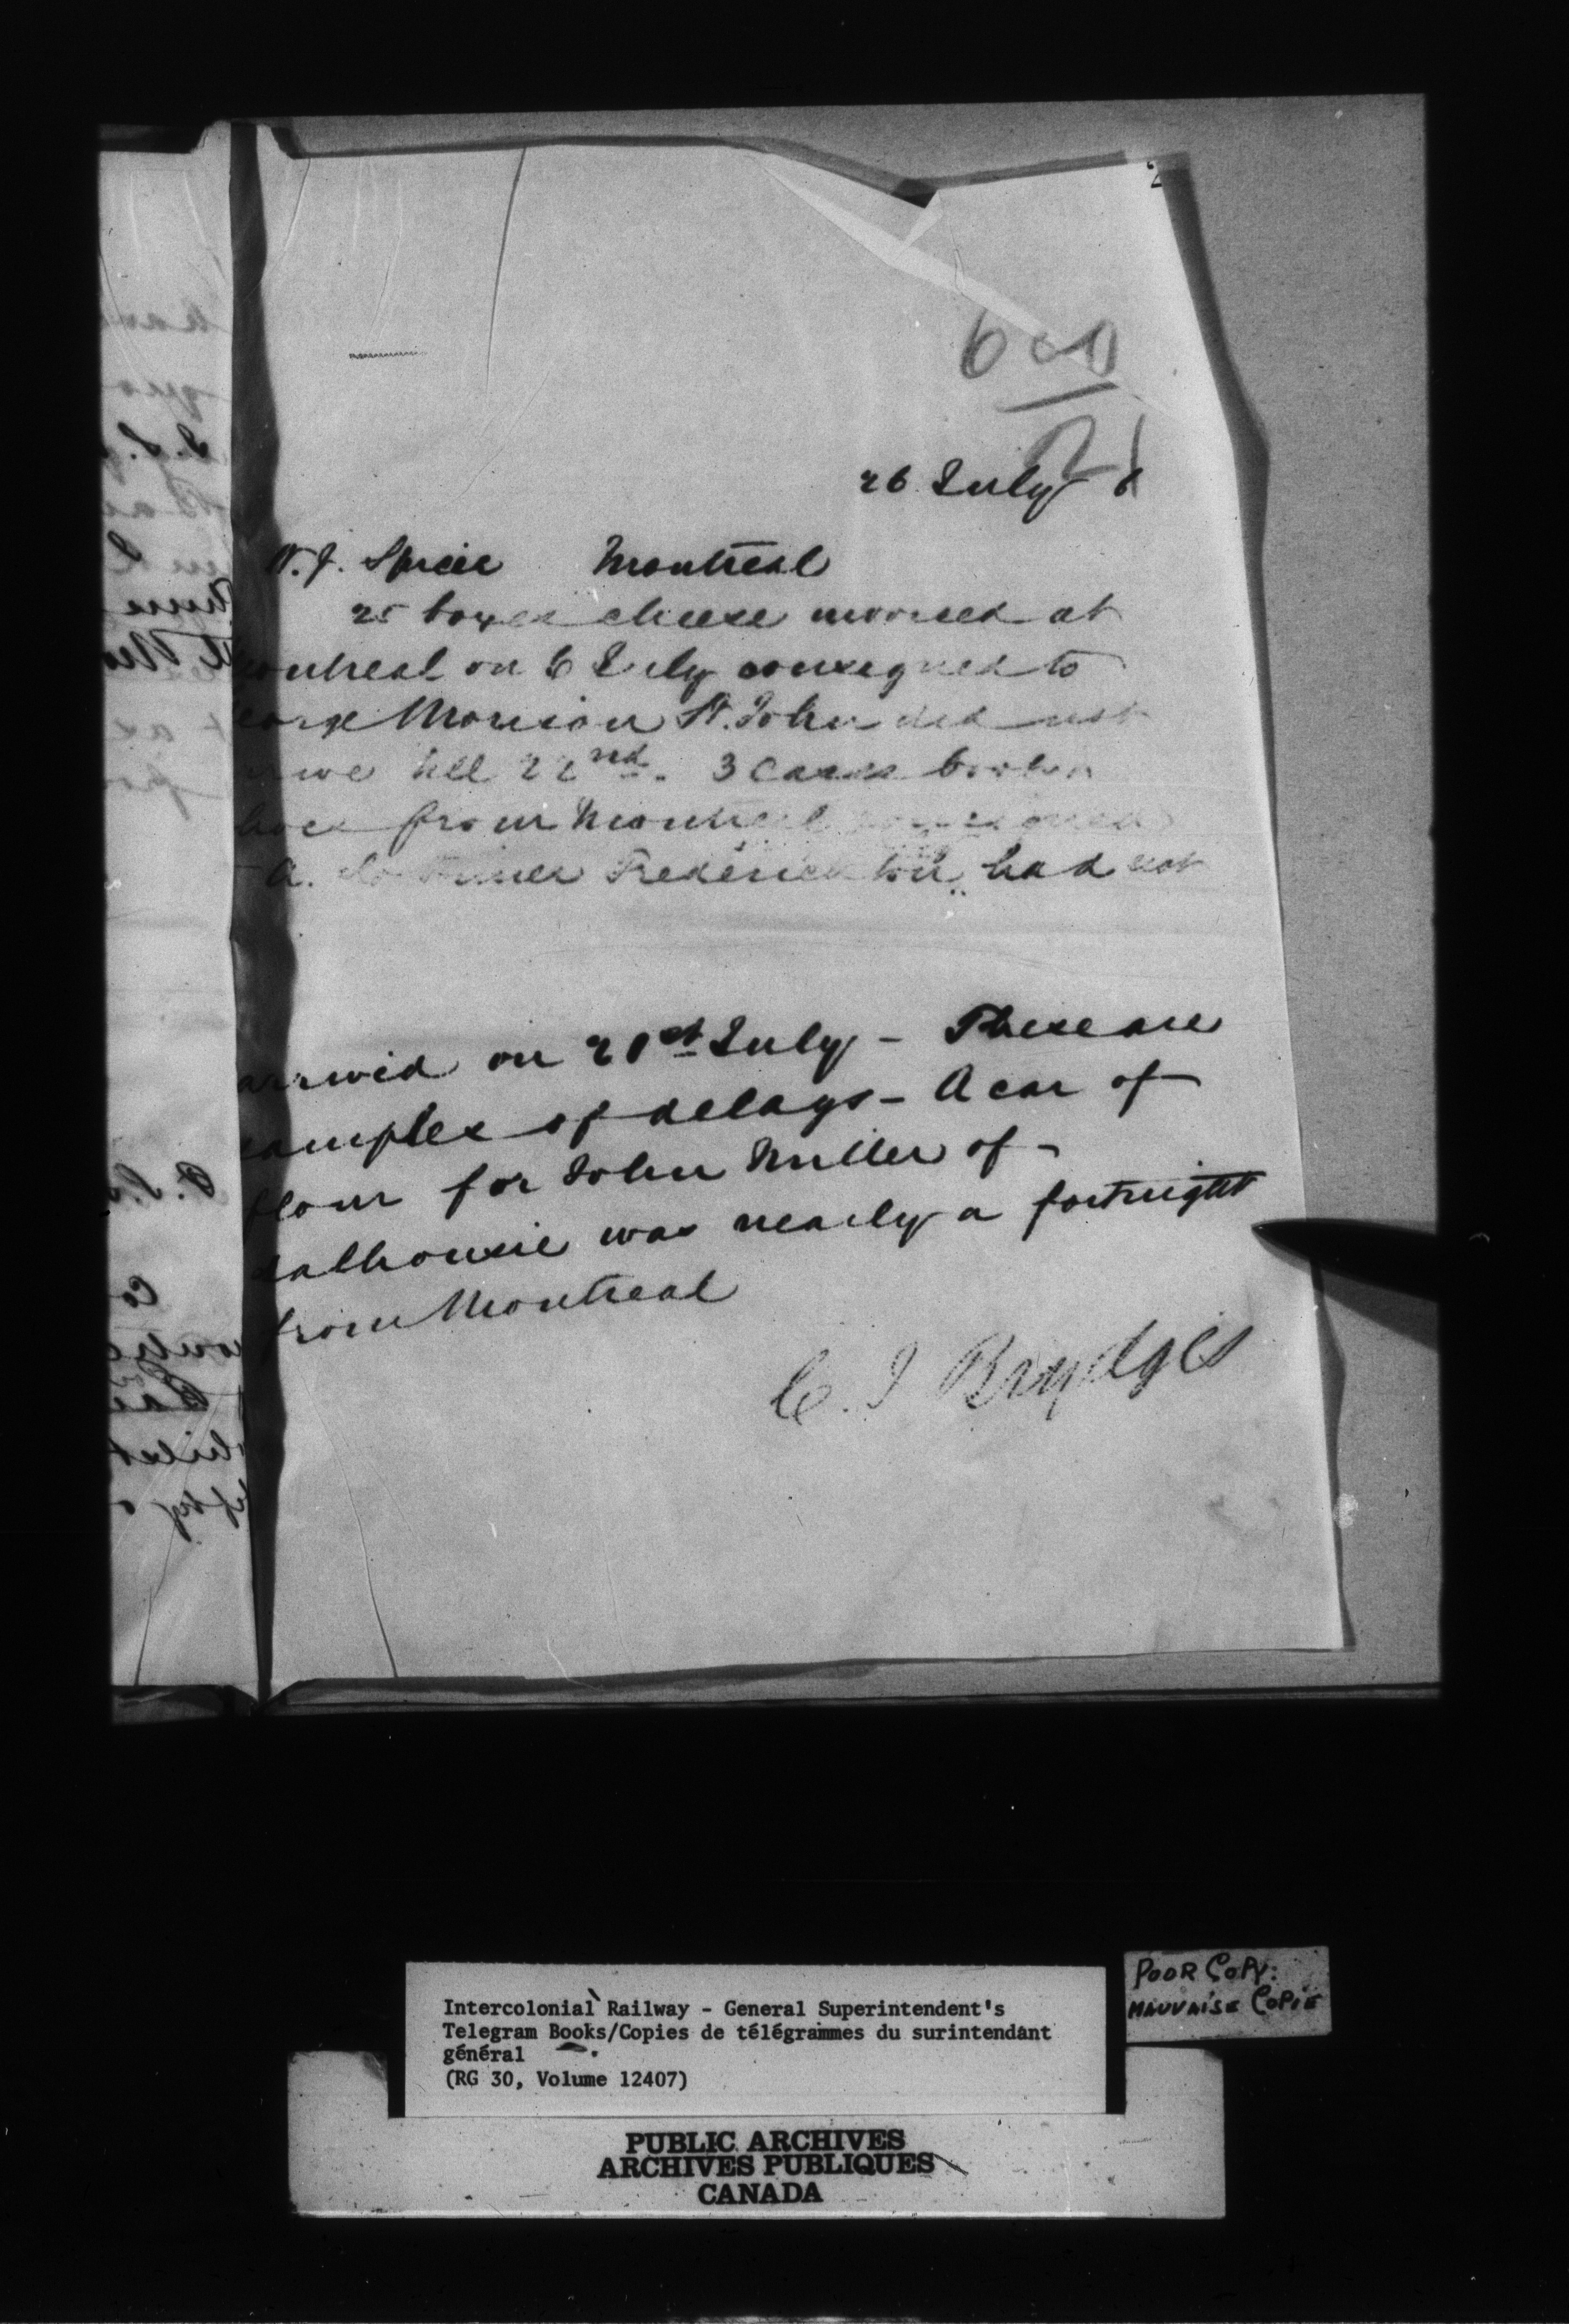 600
21
26 July 6
W. J. Spicer Montreal
25 boxes cheese invoiced at
ontreal on 6 July consigned to
eorge Morrison St. John did not
rive till 22nd. 3 Cases
from Montreal consigned
A. Fredericton had not
arrived on 21st July - These are
amples of delays - A car of
flour for John Miller of
alhousie was nearly a fortnight
from Montreal
C. J Brydges
Intercolonial Railway - General Superintendent's
Telegram Books/Copies de télégrammes du surintendant
général
(RG 30, Volume 12407)
POOR COPY:
MAUVAISE COPIE
PUBLIC ARCHIVES
ARCHIVES PUBLIQUES
CANADA